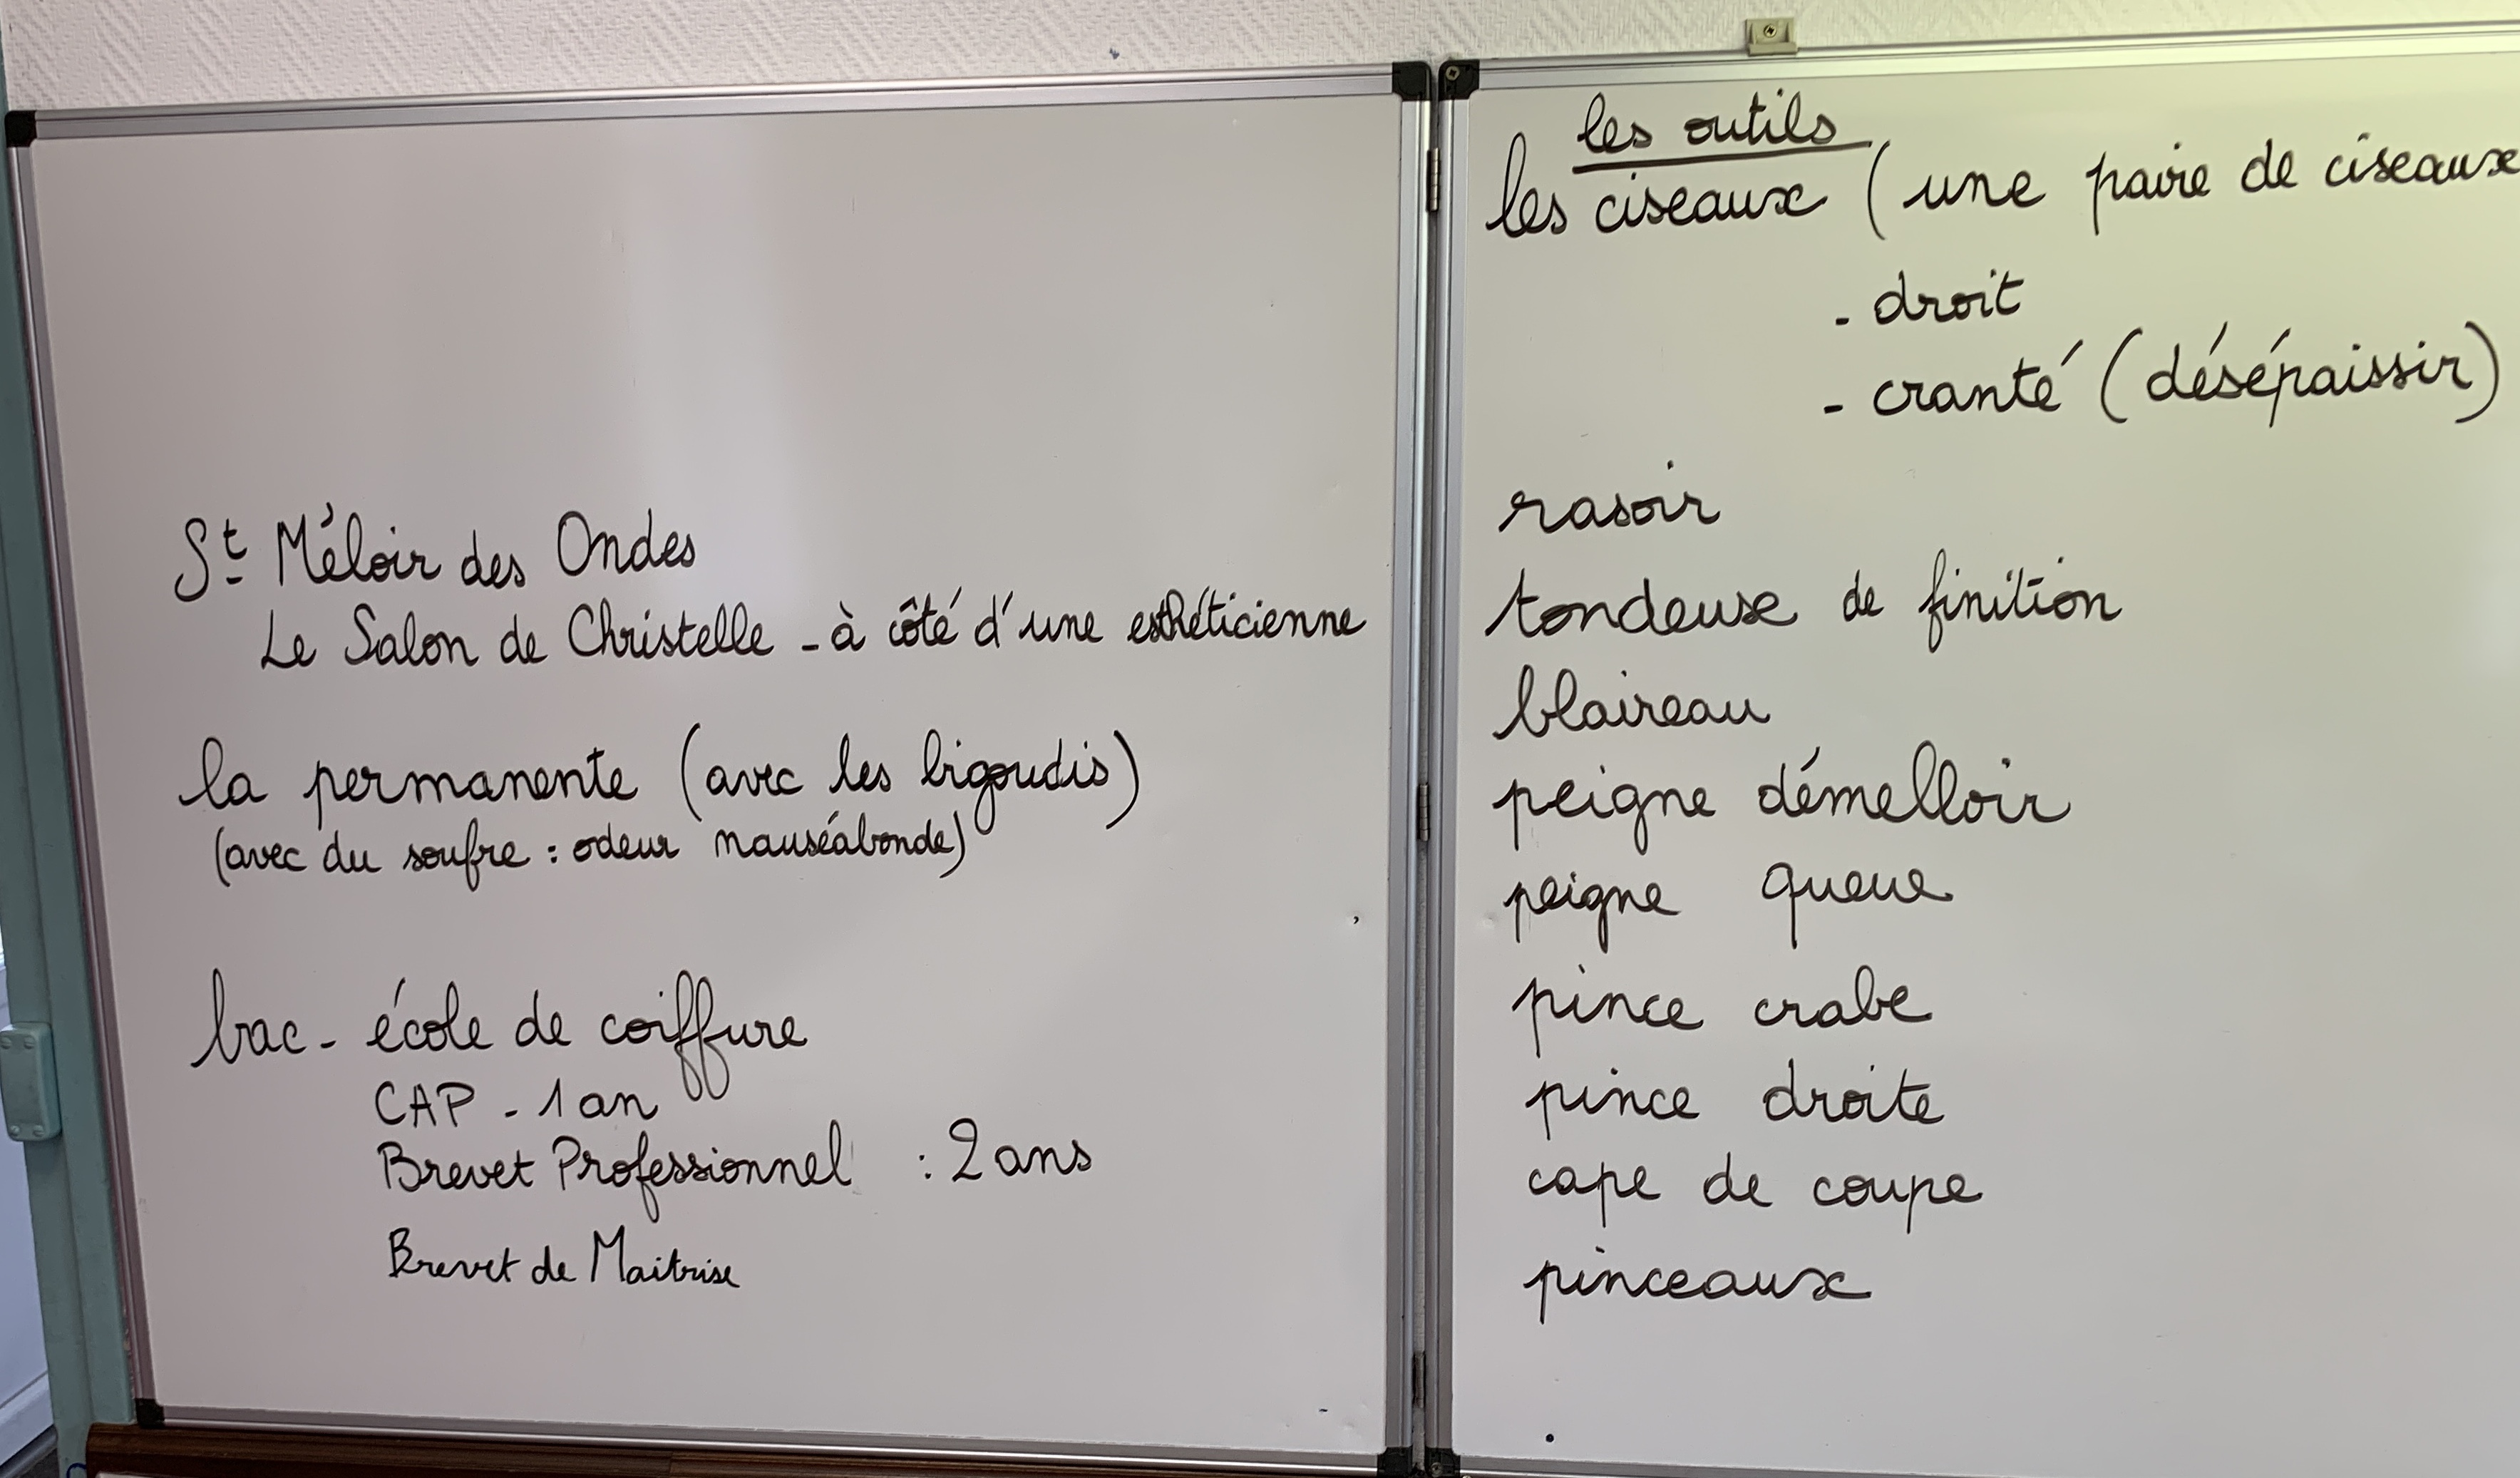 St Méloir des Ondes
Le Salon de Christelle - à côté d'une esthéticienne
la permanente (avec les bigoudis)
(avec du soufre : odeur nauséabonde)
bac - école de coiffure
CAP - 1 an
Brevet Professionnel : 2 ans
Brevet de Maitrise
les outils
les ciseaux (une paire de ciseaux
- droit
- cranté (désépaissir)
rasoir
tondeuse de finition
blaireau
peigne démelloir
peigne queue
pince crabe
pince droite
cape de coupe
pinceaux